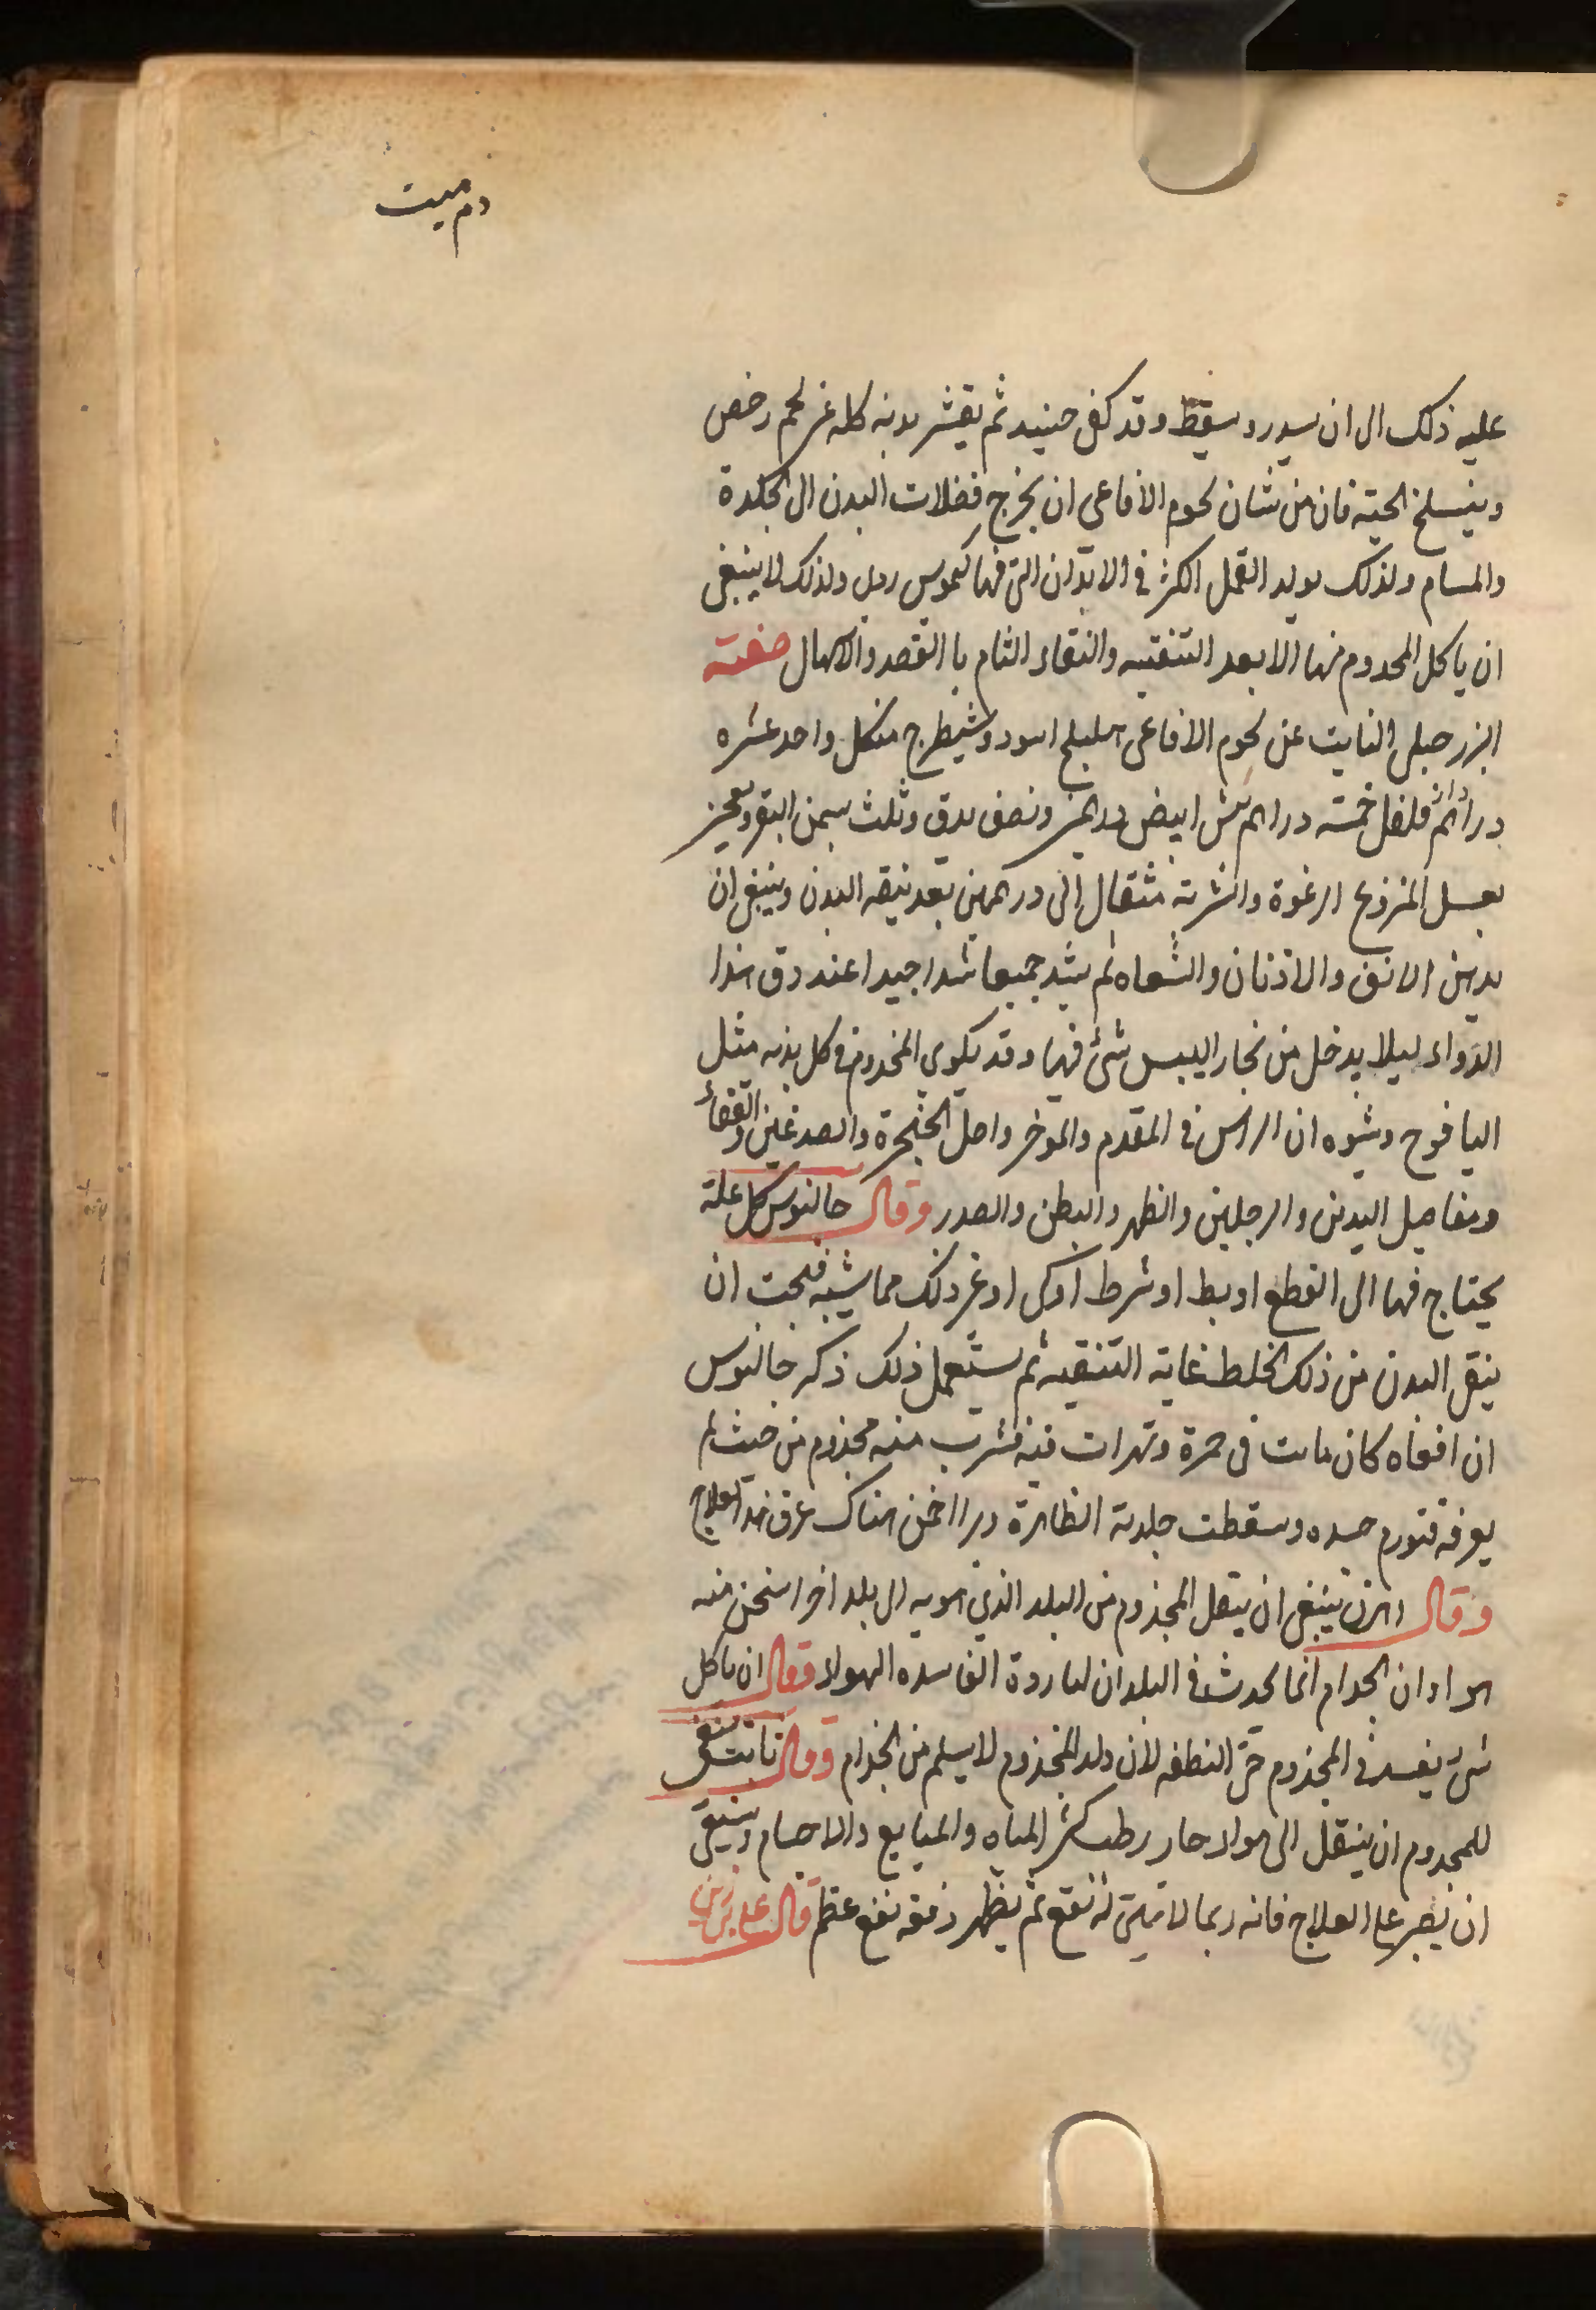 دم ميت
عليه ذلك الى ان يسدر ويسقط وقد كفى حينيد ثم يقشر بدنه كله عن لحم رخص
وينسلخ الحية فان من شان لحوم الافاعى ان يخرج فضلات البدن الى الجلدة
والمسام ولذلك يولد القمل الكثر فى الابدان التى فيها كيموس ردى ولذلك لا ينبغى
ان ياكل المجدوم منها الا بعد التنقيه والنقاء التام با الفصد والاسهال صفته
البزر جبلى النايت عن لحوم الافاعى اهليلج اسود وشيطرج منكل واحد عشره
دراهم فلفل خمسة دراهم بيش ابيض درهمين ونصف يدق وثلث بسمن البقر ويعجن
بعسل المنزوع الرغوة والشربة مثقال الى درهمين بعد تنيقه البدن وينبغى ان
يدهن الانف والاذنان والشفاه ثم يشد جميعا شدا جيدا عند دق هذا
الدواء ليلا يدخل من بخار البيس شئ فيها وقد يكوى المجذوم فى كل بدنه مثل
اليافوخ وشوه ان الراس فى المقدم والموخر واصل الحنجرة والصدغين والقفاء
ومفاصل اليدين والرجلين والظهر والبطن والصدر وقال جالنوس كل علة
يحتاج فيها الى القطع او بط او شرط او كى او غر ذلك مما يشبه فيجب ان
ينقى البدن من ذلك الخلط غاية التنقيه ثم يستعمل ذلك ذكر جالنوس
ان افعاه كان ماتت فى خمرة وتهرات فيه فشرب منه مجذوم من حيث لم
يعرفه فتورم جسده وسقطت جلدته الظاهرة وبرا فمن هناك عرف هذا العلاج
وقال اهرن ينبغى ان ينقل المجذوم من البلد الذي هو به الى بلد اخر اسخن منه
هواء وان الجدام انما يحدث فى البلدان الباردة الفاسده الهواء فقال ان ياكل
شئ يفسد فى المجذوم حتى النطفه لان ولد المجذوم لا يسلم من الجذام وقال ثابت ينبغى
للمجدوم ان ينتقل الى هواء حار رطب كثر المياه والمنابع والاجام وينبغى
ان يصبر على العلاج فانه ربما لا يتبين له نفع ثم يظهر دفعه نفع عظم قال على بن ربن